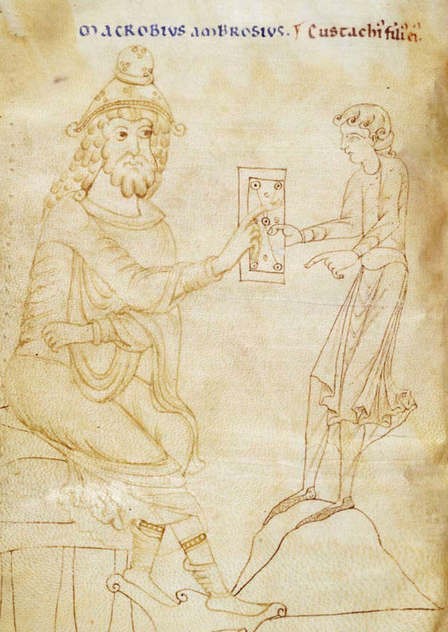 MACROBIVS AMBROSIVS. ⁊ Eustachiꝰ filiꝰ eiꝰ.